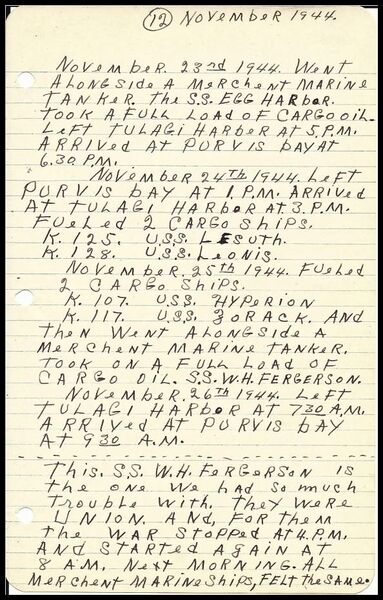 (12) NOVEMBER 1944.
NOVEMBER 23nd 1944. WENT
ALONGSIDE A MERCHENT MARINE
TANKER. The S.S. EGG HARBOR.
TOOK A FULL LOAD OF CARGO OIL.
LEFT TULAGI HARBOR AT 5 P.M.
ARRIVED AT PURVIS bAY AT
6.30 P.M.
NOVEMBER 24th 1944. LEFT
PURVIS bAY AT 1.P.M. ARRIVED
AT TULAGI HARBOR AT 3.P.M.
FUELED 2 CARGO Ships.
K. 125. U.S.S. LESUTH.
K. 128. U.S.S. LEONIS.
NOVEMBER 25th 1944. FUELED
2 CARGO ShipS.
K. 107. USS. HYPERION
K. 117. USS. ZORACK. AND
then WENT ALONGSIDE A
MERCHENT MARINE TANKER.
TOOK ON A FULL LOAD OF
CARGO OIL. S.S. W.H. FERGERSON.
NOVEMBER 26th 1944. LEFT
TULAGI HARBOR AT 730 A.M.
ARRIVED AT PURVIS bAY
AT 930 A.M.
This. S.S. W.H. FERGERSON IS
the ONE WE hAD SO MUCH
TROUBLE WITH. THEY WERE
UNION. AND, FOR THEM
the WAR STOPPED AT 4.P.M.
AND STARTED AGAIN AT
8 A.M. NEXT MORNING. ALL
MERCHENT MARINE ShipS, FELT the SAME.